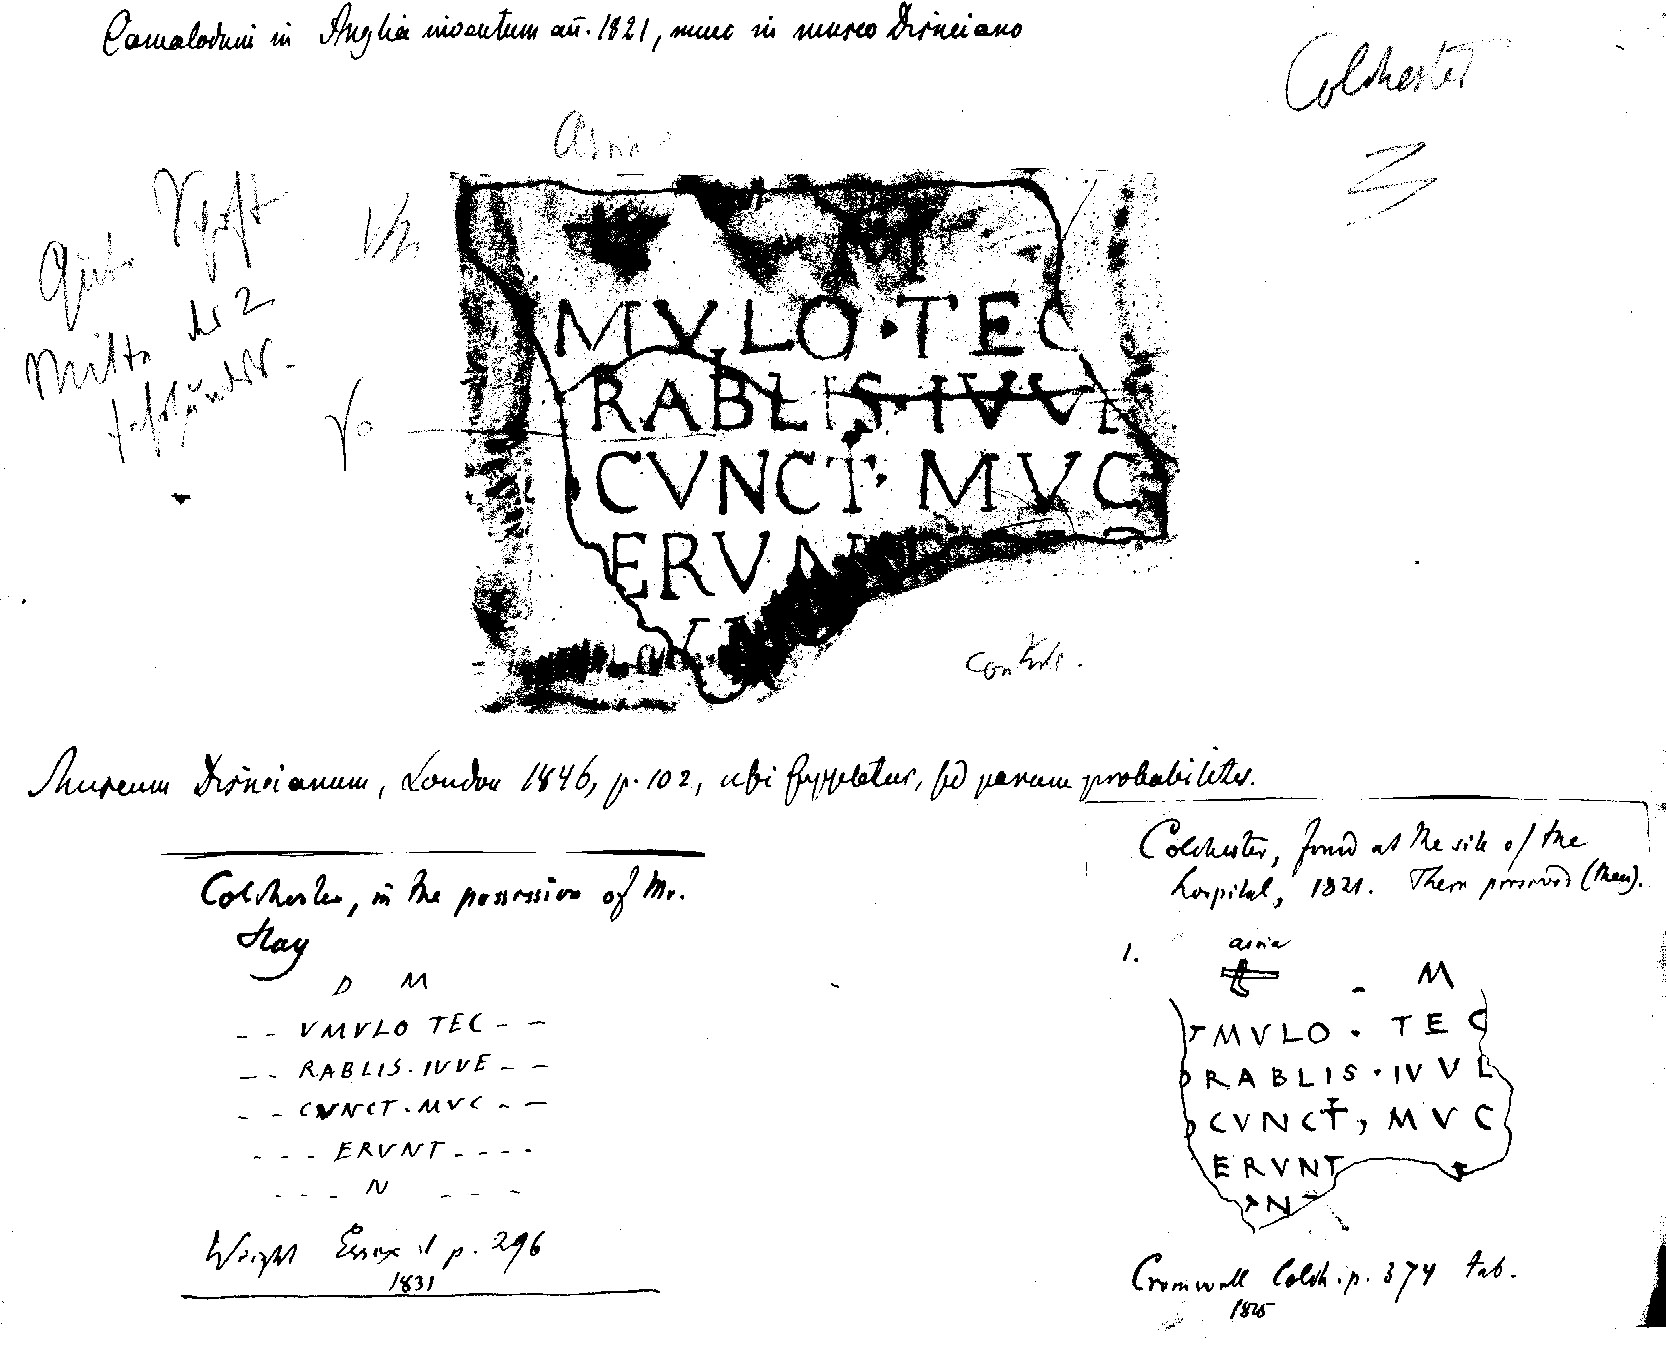 Camaloduni in Anglia inventum an. 1821, nunc in museo Disneiano
Colchester
3
Ascia
1/2
MVLO · TEC
RABLIS · IVVE
CVNCT · MVC
ERVN
Museum Disneianum, London 1846, p. 102, ubi suppletur, sed parum probabiliter.
Colchester, in the possession of Mr.
Hay
D M
- - VMVLO TEC - -
- - RABLIS. IVVE - -
- - CVNCT. MVC - -
- - - ERVNT - - - -
- - - N - - -
Wright Essex p. 296
1831
Colchester, found at the site of the
hospital, 1821. There preserved (then).
1. ascia
- M
MVLO · TEC
RABLIS · IVVE
CVNCT, MVC
ERVNT
N
Cromwell Colch. p. 374 tab.
1825